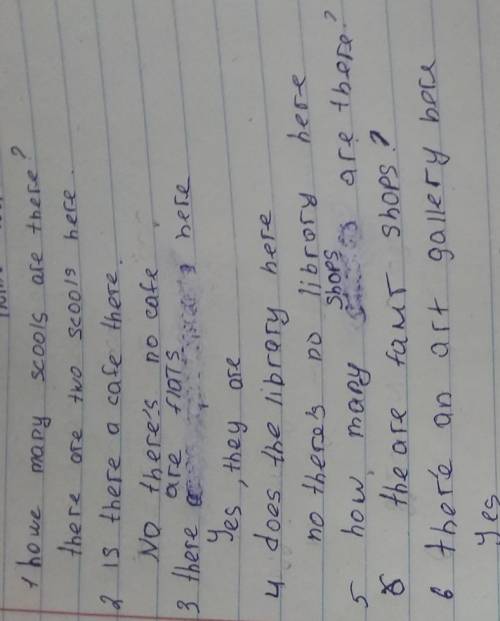 1 howe many scools are there?
there are two scools here.
2 is there a cafe there.
No there's no cafe
3 there are flats here
Yes, they are
4 does the library here
no there's no library here
5 how many shops are there?
the are four shops.
6 there an art gallery here
Yes